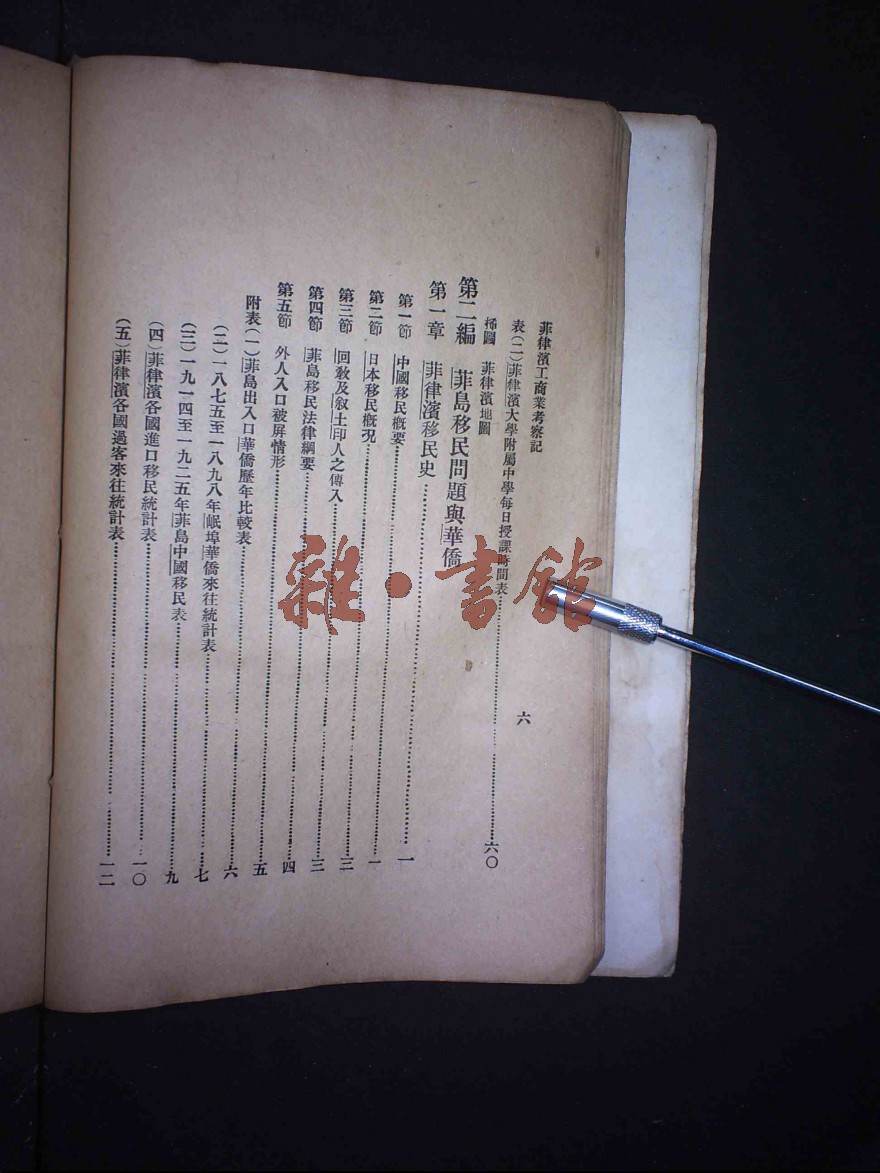 菲律濱工商業考察記 六
表（二）菲律濱大學附屬中學每日授課時間表……六〇
插圖 菲律濱地圖
第二編 菲島移民問題與華僑
第一章 菲律濱移民史……一
第一節 中國移民概要……一
第二節 日本移民概況……三
第三節 回敎及敍土印人之傳入……三
第四節 菲島移民法律綱要……四
第五節 外人入口被屏情形……五
附表（一）菲島出入口華僑歷年比較表……六
（二）一八七五至一八九八年岷埠華僑來往統計表……七
（三）一九一四至一九二五年菲島中國移民表……九
（四）菲律濱各國進口移民統計表……一〇
（五）菲律濱各國過客來往統計表……一二
雜·書館